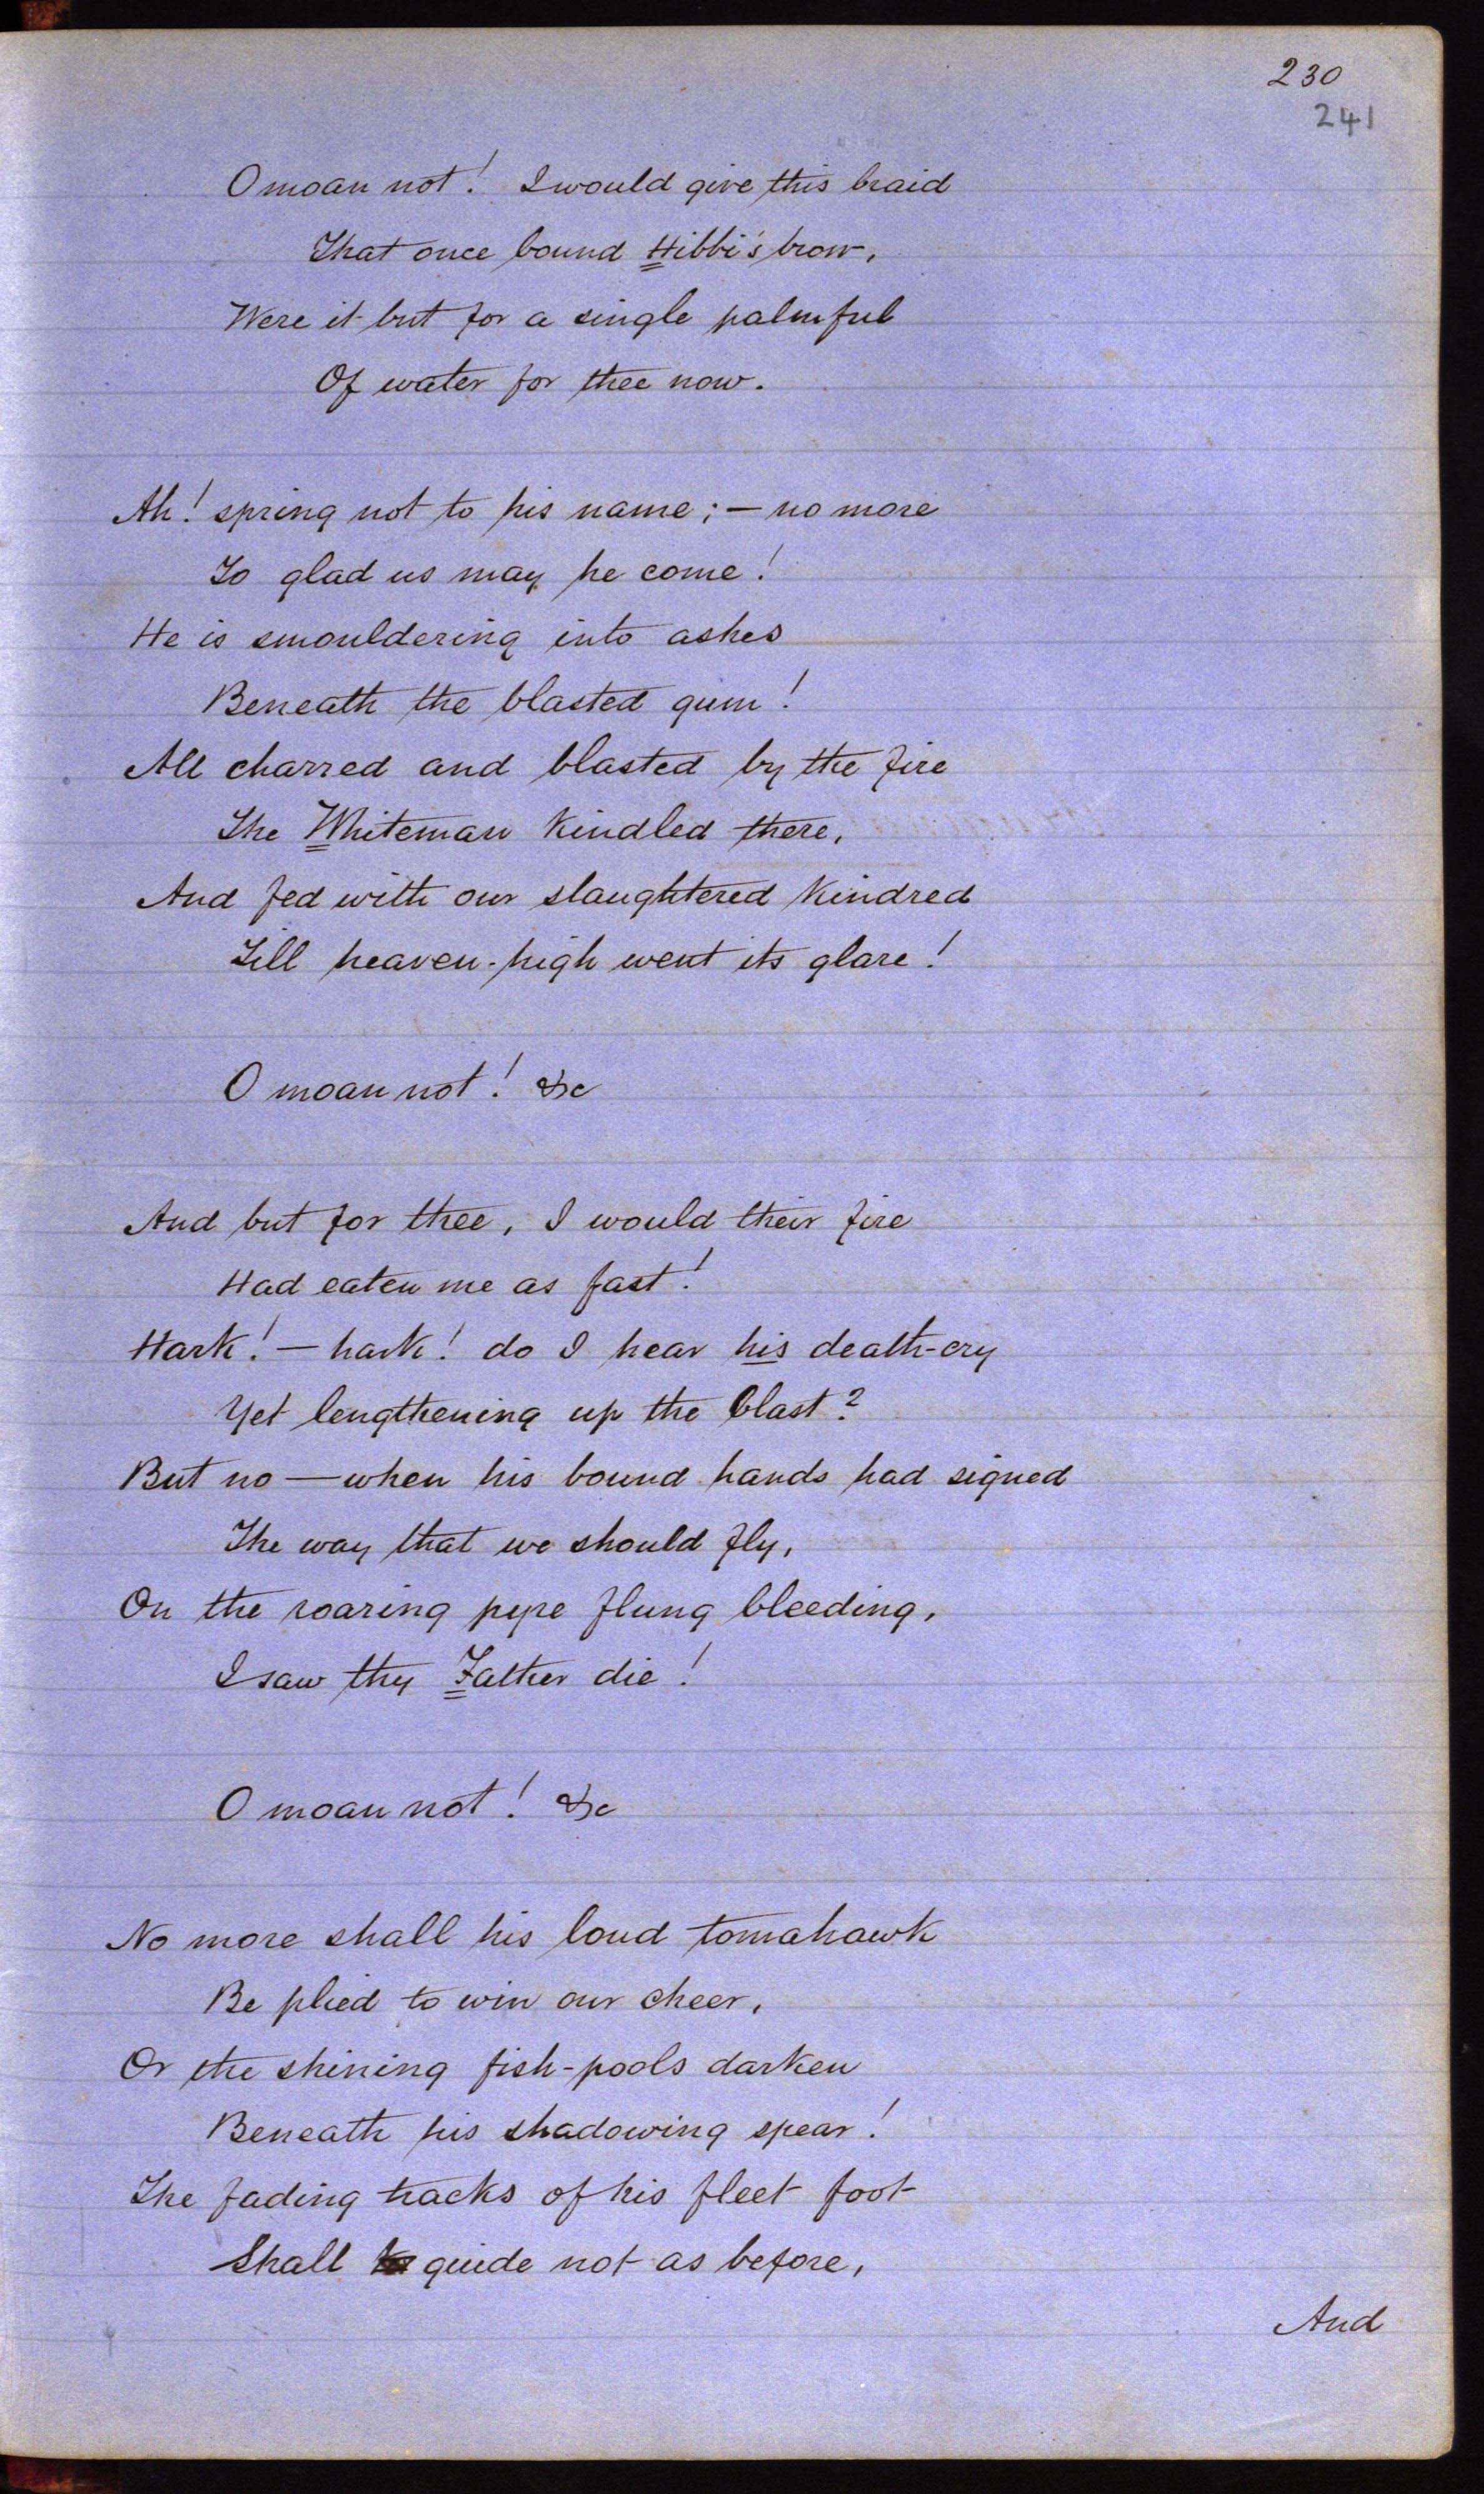 230
241
O moan not! I would give this braid
That once bound Hibbi's brow,
Were it but for a single palmful
Of water for thee now.
Ah! spring not to his name; — no more
To glad us may he come!
He is smouldering into ashes
Beneath the blasted gum!
All charred and blasted by the fire
The Whiteman kindled there,
And fed with our slaughtered kindred
Till heaven-high went its glare!
O moan not! &c
And but for thee, I would their fire
Had eaten me as fast!
Hark! — hark! do I hear his death-cry
Yet lengthening up the blast?
But no — when his bound hands had signed
The way that we should fly,
On the roaring pyre flung bleeding,
I saw thy Father die!
O moan not! &c
No more shall his loud tomahawk
Be plied to win our cheer,
Or the shining fish-pools darken
Beneath his shadowing spear!
The fading tracks of his fleet foot
Shall guide not as before,
And